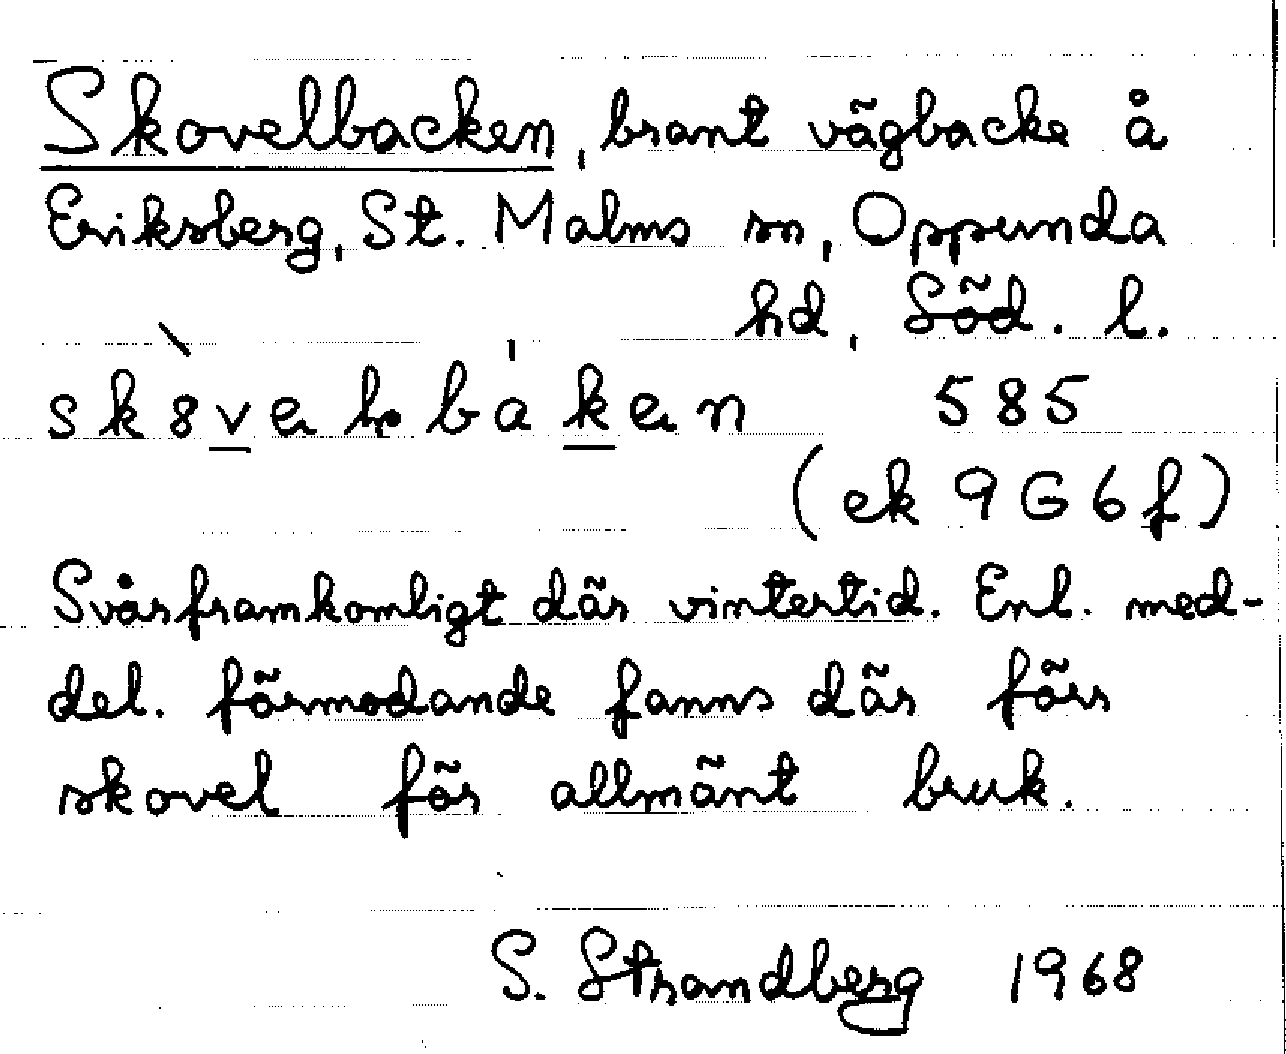 Skovelbacken, brant vägbacke å
Eriksberg, St. Malms sn, Oppunda
hd, Söd. l.
585
(ek 9G6f)
Svårframkomligt där vintertid. Enl. med-
del. förmodande fanns där förr
skovel för allmänt bruk.
S. Strandberg 1968